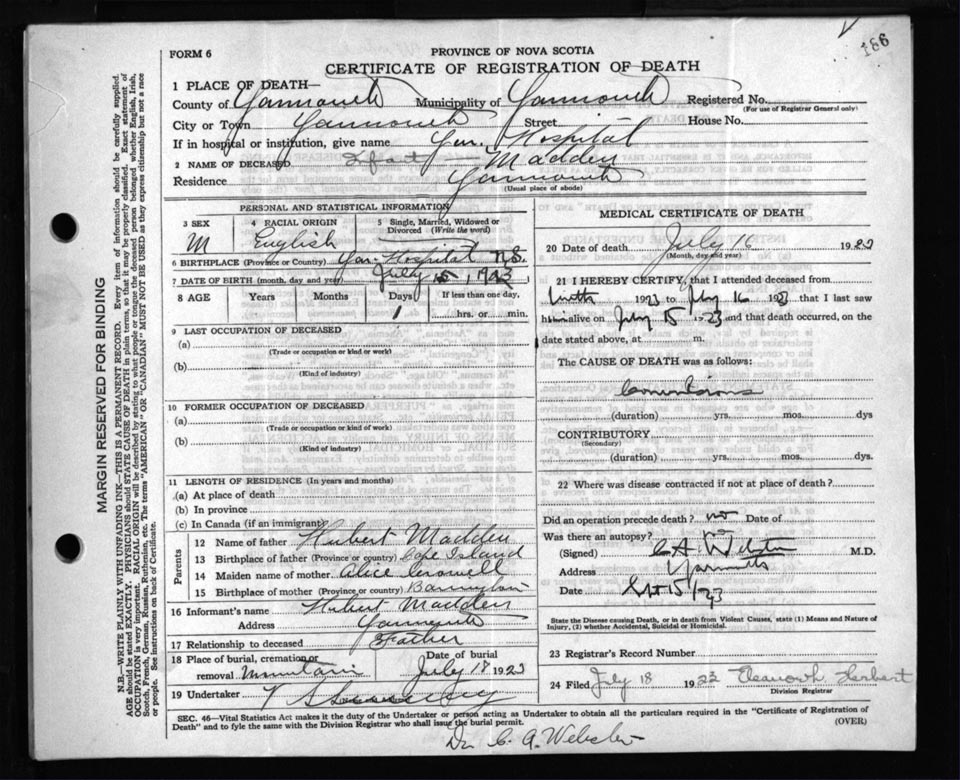 186
FORM 6
PROVINCE OF NOVA SCOTIA
CERTIFICATE OF REGISTRATION OF DEATH
1 PLACE OF DEATH—
County of Yarmouth Municipality of Yarmouth Registered No.
(For use of Registrar General only)
City or Town Yarmouth Street House No.
If in hospital or institution, give name Yar. Hospital
2 NAME OF DECEASED Infant Madden
Residence Yarmouth
(Usual place of abode)
MARGIN RESERVED FOR BINDING
N.B.—WRITE PLAINLY WITH UNFADING INK—THIS IS A PERMANENT RECORD. Every item of information should be carefully supplied.
AGE should be stated EXACTLY. PHYSICIANS should STATE CAUSE OF DEATH in plain terms, so that it may be properly classified. Exact statement of
OCCUPATION is very important. RACIAL ORIGIN will be described by stating to what people or tongue the deceased person belonged whether English, Irish,
Scotch, French, German, Russian, Ruthenian, etc. The terms "AMERICAN" OR "CANADIAN" MUST NOT BE USED as they express citizenship but not a race
or people. See instructions on back of Certificate.
PERSONAL AND STATISTICAL INFORMATION
3 SEX
M
4 RACIAL ORIGIN
English
5 Single, Married, Widowed or
Divorced (Write the word)
6 BIRTHPLACE (Province or Country) Yar. Hospital N.S.
7 DATE OF BIRTH (month, day, and year) July 15, 1923
8 AGE Years Months Days If less than one day,
1 hrs. or min.
9 LAST OCCUPATION OF DECEASED
(a)
(Trade or occupation or kind or work)
(b)
(Kind of industry)
10 FORMER OCCUPATION OF DECEASED
(a)
(Trade or occupation or kind or work)
(b)
(Kind of industry)
11 LENGTH OF RESIDENCE (In years and months)
(a) At place of death
(b) In province
(c) In Canada (if an immigrant)
Parents
12 Name of father Hubert Madden
13 Birthplace of father (Province or country) Cape Island
14 Maiden name of mother Alice Crowell
15 Birthplace of mother (Province or country) Barrington
16 Informant's name Hubert Madden
Address Yarmouth
17 Relationship to deceased Father
18 Place of burial, cremation or removal Mountain Date of burial July 18 1923
19 Undertaker V S Sweeney
MEDICAL CERTIFICATE OF DEATH
20 Date of death July 16 1923
(Month, day and year)
21 I HEREBY CERTIFY, that I attended deceased from
birth 1923 to July 16 1923 that I last saw
him alive on July 15 1923 and that death occurred, on the
date stated above, at m.
The CAUSE OF DEATH was as follows:
Convulsions
(duration) yrs. mos. dys
CONTRIBUTORY
(Secondary)
(duration) yrs. mos. dys.
22 Where was disease contracted if not at place of death?
Did an operation precede death? no Date of
Was there an autopsy? no
(Signed) C A Webster M.D.
Address Yarmouth
Date Sept 15/23
State the Disease causing Death, or in death from Violent Causes, state (1) Means and Nature of
Injury, (2) whether Accidental, Suicidal or Homicidal.
23 Registrar's Record Number
24 Filed July 18 1923 Herbert
Division Registrar
SEC. 46—Vital Statistics Act makes it the duty of the Undertaker or person acting as Undertaker to obtain all the particulars required in the "Certificate of Registration of
Death" and to fyle the same with the Division Registrar who shall issue the burial permit.
(OVER)
Dr. C. A. Webster